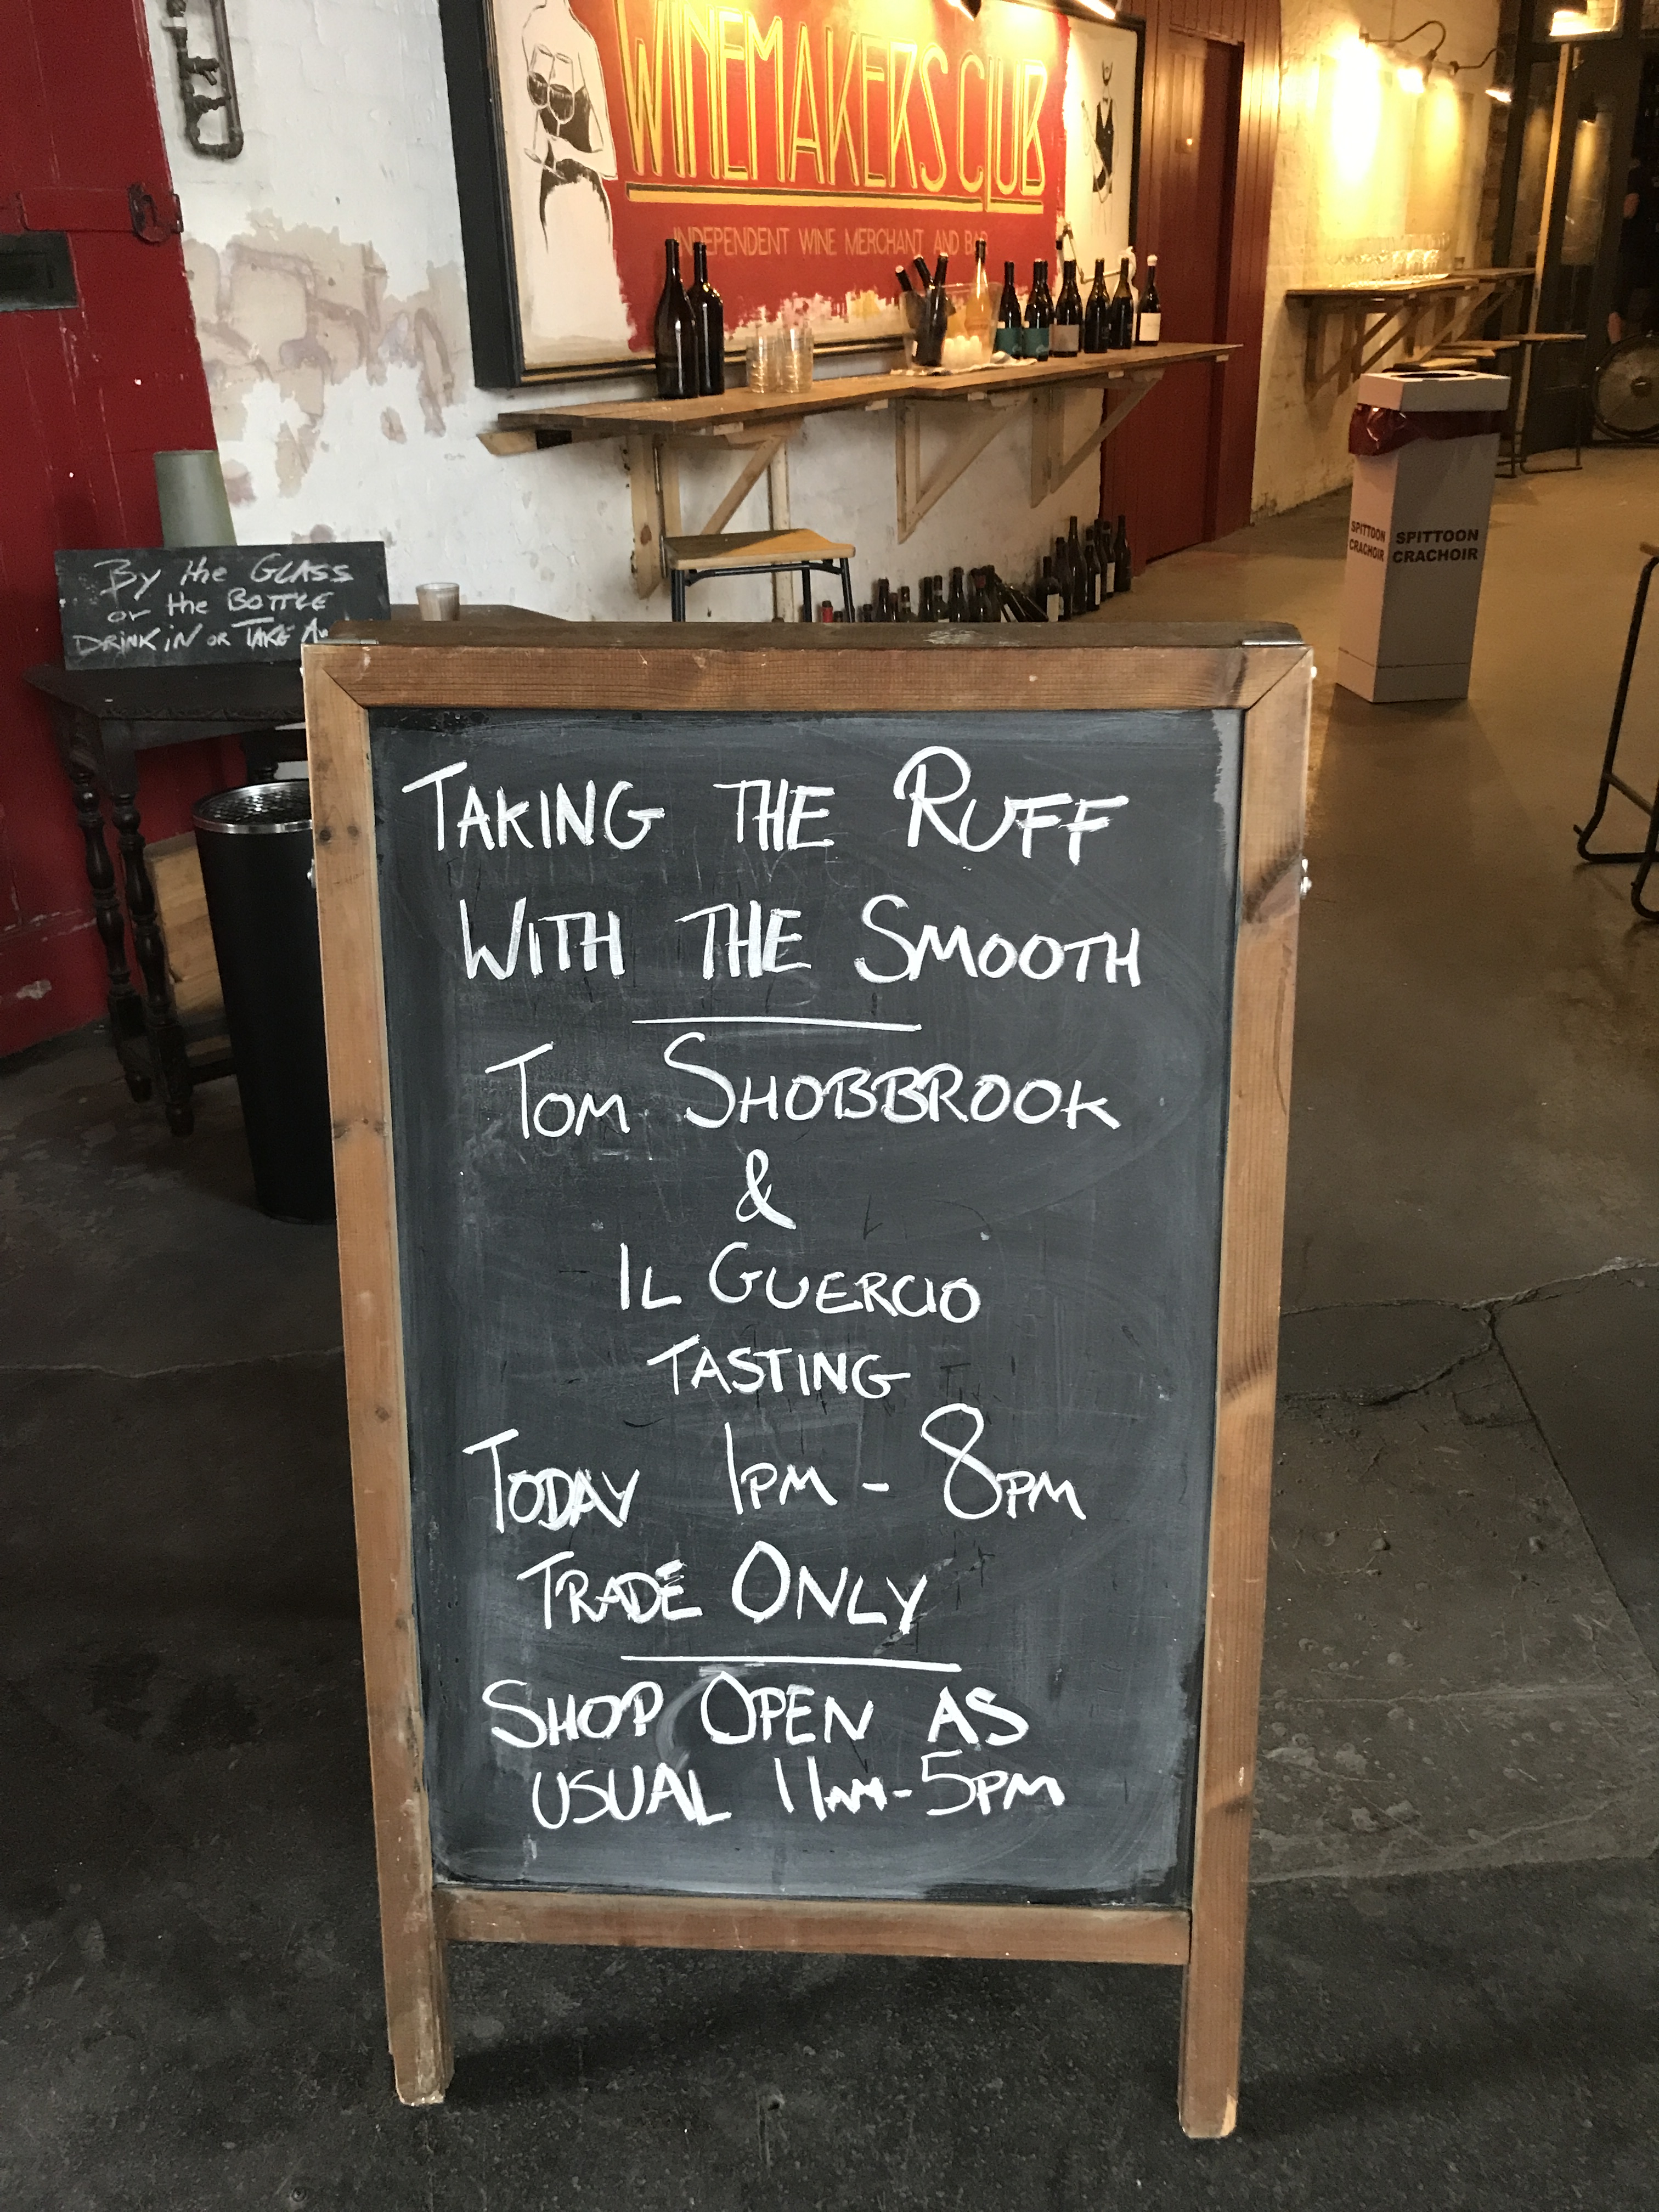 WINEMAKERS CLUB
INDEPENDENT WINE MERCHANT AND BAR
SPITTOON
CRACHOIR
SPITTOON
CRACHOIR
By the GLASS
or the BOTTLE
DRINK iN OR TAKE
TAKING THE RUFF
WITH THE SMOOTH
TOM SHOBBROOK
&
IL GUERCIO
TASTING
TODAY 1PM - 8PM
TRADE ONLY
SHOP OPEN AS
USUAL 11AM-5PM